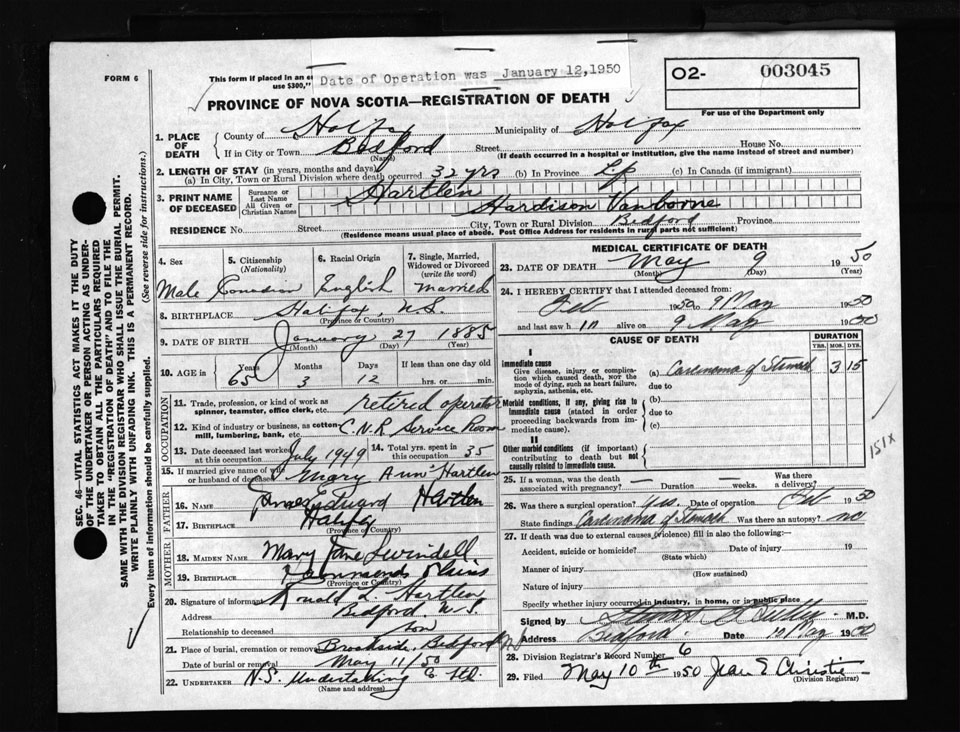 FORM 6
This form if placed in an e
use $300,"
Date of Operation was January 12,1950
O2- 003045
For use of the Department only
PROVINCE OF NOVA SCOTIA—REGISTRATION OF DEATH
1. PLACE OF DEATH
County of Halifax Municipality of Halifax
If in City or Town Bedford Street House No.
(Name) (If death occurred in a hospital or institution, give the name instead of street and number)
2. LENGTH OF STAY (in years, months and days)
(a) In City, Town or Rural Division where death occurred 32 yrs (b) In Province Life (c) In Canada (if immigrant)
3. PRINT NAME OF DECEASED
Surname or Last Name Hartlen
All Given or Christian Names Hardison Vanborne
RESIDENCE No. Street City, Town or Rural Division Bedford Province
(Residence means usual place of abode. Post Office Address for residents in rural parts not sufficient)
4. Sex Male
5. Citizenship (Nationality) Canadian
6. Racial Origin English
7. Single, Married, Widowed or Divorced (write the word) married
8. BIRTHPLACE Halifax, N.S.
(Province or Country)
9. DATE OF BIRTH January 27 1885
(Month) (Day) (Year)
10. AGE in Years 65 Months 3 Days 12 If less than one day old hrs. or min.
OCCUPATION
11. Trade, profession, or kind of work as spinner, teamster, office clerk, etc. retired operator
12. Kind of industry or business, as cotton mill, lumbering, bank, etc. C.N.R Service Room
13. Date deceased last worked at this occupation July 1949
14. Total yrs. spent in this occupation 35
15. If married give name of wife or husband of deceased Mary Ann Hartlen
FATHER
16. NAME James Edward Hartlen
17. BIRTHPLACE Halifax
(Province or Country)
MOTHER
18. MAIDEN NAME Mary Jane
19. BIRTHPLACE Plains
(Province or Country)
20. Signature of informant Ronald L. Hartlen
Address Bedford N.S.
Relationship to deceased son
21. Place of burial, cremation or removal Brookside, Bedford
Date of burial or removal May 11/50
22. UNDERTAKER N.S. Undertaking Co Ltd.
(Name and address)
MEDICAL CERTIFICATE OF DEATH
23. DATE OF DEATH May 9 1950
(Month) (Day) (Year)
24. I HEREBY CERTIFY that I attended deceased from:
Feb 1950 9 May 1950
and last saw h im alive on 9 May 1950
CAUSE OF DEATH DURATION
YRS. MOS. DYS.
I
Immediate cause
Give disease, injury or complication which caused death, not the mode of dying, such as heart failure, asphyxia, asthenia, etc.
(a) Carcinoma of Stomach 3 15
due to
Morbid conditions, if any, giving rise to immediate cause (stated in order proceeding backwards from immediate cause).
(b)
due to
(c)
II
Other morbid conditions (if important) contributing to death but not causally related to immediate cause.
151X
25. If a woman, was the death associated with pregnancy? Duration weeks. Was there a delivery?
26. Was there a surgical operation? Yes. Date of operation Feb 1950
State findings Carcinoma of Stomach Was there an autopsy? no
27. If death was due to external causes (violence) fill in also the following:—
Accident, suicide or homicide? Date of injury 19
(State which)
Manner of injury
(How sustained)
Nature of injury
Specify whether injury occurred in industry, in home, or in public place
Signed by M.D.
Address Bedford NS Date 10 May 1950
28. Division Registrar's Record Number 6
29. Filed May 10th 1950 Jean E Christie
(Division Registrar)
SEC. 46—VITAL STATISTICS ACT MAKES IT THE DUTY
OF THE UNDERTAKER OR PERSON ACTING AS UNDER-
TAKER TO OBTAIN ALL THE PARTICULARS REQUIRED
IN THE "REGISTRATION OF DEATH" AND TO FILE THE
SAME WITH THE DIVISION REGISTRAR WHO SHALL ISSUE THE BURIAL PERMIT.
WRITE PLAINLY WITH UNFADING INK. THIS IS A PERMANENT RECORD.
Every item of information should be carefully supplied. (See reverse side for instructions.)